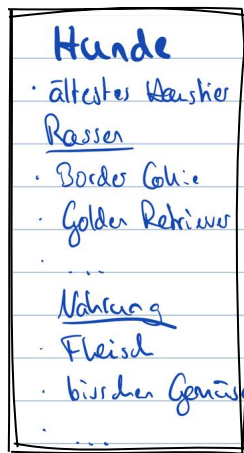 Hunde
· ältestes Haustier
Rassen
· Border Collie
· Golden Retriever
· ...
Nahrung
· Fleisch
· bisschen Gemüse
· ...